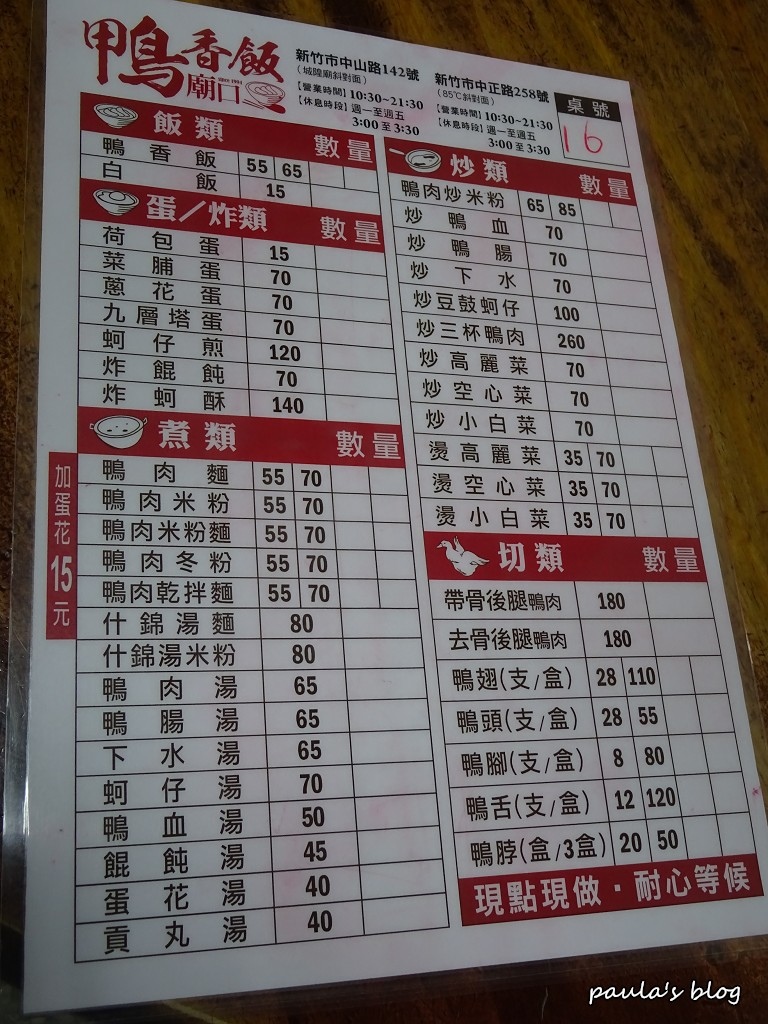 鴨香飯
廟口
since 1994
新竹市中山路142號
(城隍廟斜對面)
【營業時間】10:30~21:30
【休息時段】週一至週五
3:00 至 3:30
新竹市中正路258號
(85℃斜對面)
【營業時間】10:30~21:30
【休息時段】週一至週五
3:00 至 3:30
桌號
16
飯類 數量
鴨香飯 55 65
白飯 15
蛋/炸類 數量
荷包蛋 15
菜脯蛋 70
蔥花蛋 70
九層塔蛋 70
蚵仔煎 120
炸餛飩 70
炸蚵酥 140
煮類 數量
加蛋花15元
鴨肉麵 55 70
鴨肉米粉 55 70
鴨肉米粉麵 55 70
鴨肉冬粉 55 70
鴨肉乾拌麵 55 70
什錦湯麵 80
什錦湯米粉 80
鴨肉湯 65
鴨腸湯 65
下水湯 65
蚵仔湯 70
鴨血湯 50
餛飩湯 45
蛋花湯 40
貢丸湯 40
炒類 數量
鴨肉炒米粉 65 85
炒鴨血 70
炒鴨腸 70
炒下水 70
炒豆鼓蚵仔 100
炒三杯鴨肉 260
炒高麗菜 70
炒空心菜 70
炒小白菜 70
燙高麗菜 35 70
燙空心菜 35 70
燙小白菜 35 70
切類 數量
帶骨後腿鴨肉 180
去骨後腿鴨肉 180
鴨翅(支/盒) 28 110
鴨頭(支/盒) 28 55
鴨腳(支/盒) 8 80
鴨舌(支/盒) 12 120
鴨脖(盒/3盒) 20 50
現點現做·耐心等候
paula's blog